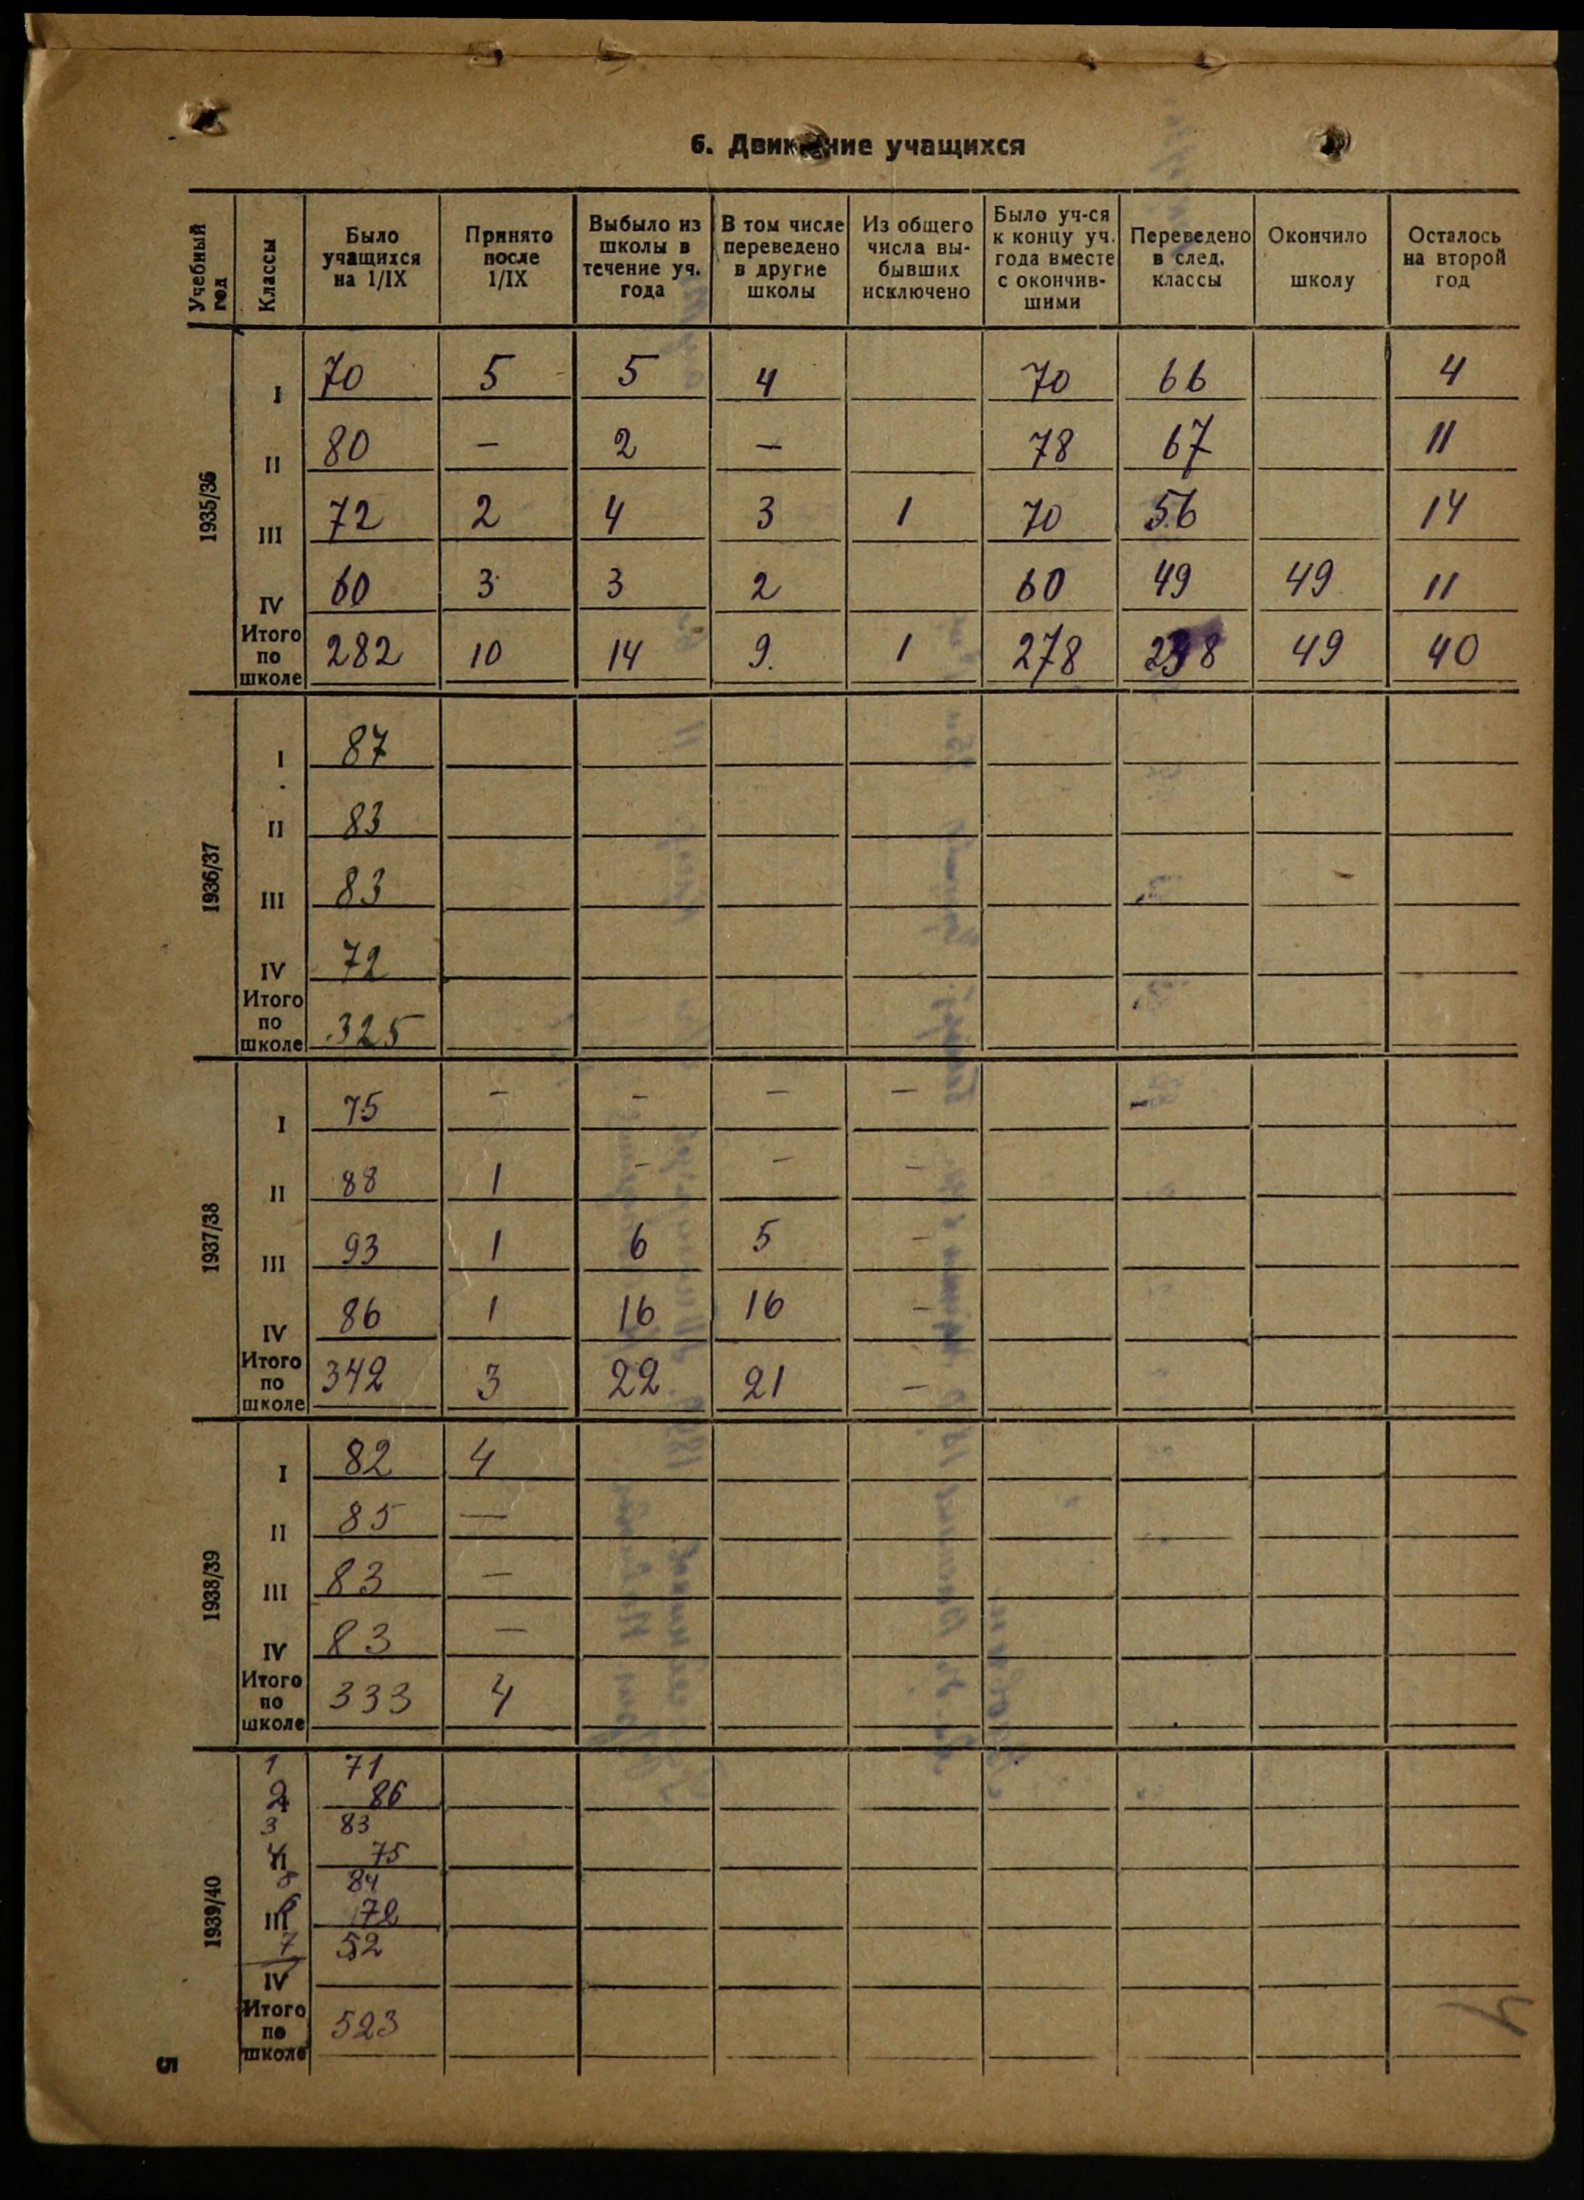 6. Движение учащихся
Учебный год | Классы | Было учащихся на 1/IX | Принято после 1/IX | Выбыло из школы в течение уч. года | В том числе переведено в другие школы | Из общего числа выбывших исключено | Было уч-ся к концу уч. года вместе с окончившими | Переведено в след. классы | Окончило школу | Осталось на второй год
1935/36
I 70 5 5 4 70 66 4
II 80 — 2 — 78 67 11
III 72 2 4 3 1 70 56 14
IV 60 3 3 2 60 49 49 11
Итого по школе 282 10 14 9. 1 278 238 49 40
1936/37
I 87
II 83
III 83
IV 72
Итого по школе 325
1937/38
I 75 — — — —
II 88 1 — — —
III 93 1 6 5 —
IV 86 1 16 16 —
Итого по школе 342 3 22 21 —
1938/39
I 82 4
II 85 —
III 83 —
IV 83 —
Итого по школе 333 4
1939/40
1 71
2 86
3 83
4 75
5 84
6 72
7 52
IV
Итого по школе 523
5